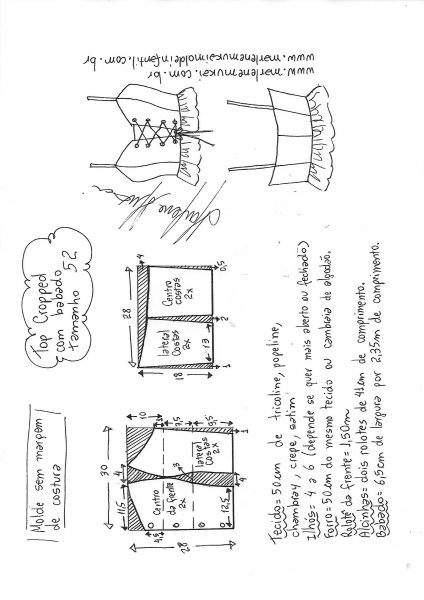 www.marlenemukaimoldeinfantil.com.br
www.marlenemukai.com.br
Marlene Mukai
Top Cropped
com babado
tamanho 52
Molde sem margem
de costura
28
4
18
lateral
Costas
2x
Centro
costas
2x
17
1
2
0,5
30
11,5
4
10
3
7,5
9,5
Centro
da frente
2x
lateral
costas
2x
12,5
4
1
4,5
28
Tecido = 50cm de tricoline, popeline,
chambray, crepe, satim
Ilhós = 4 a 6 (depende se quer mais aberto ou fechado)
Forro = 50cm do mesmo tecido ou cambraia de algodão.
Rolotê da frente = 1,50m
Alcinhas = dois rolotes de 41cm de comprimento.
Babado = 6,5cm de largura por 2,35m de comprimento.